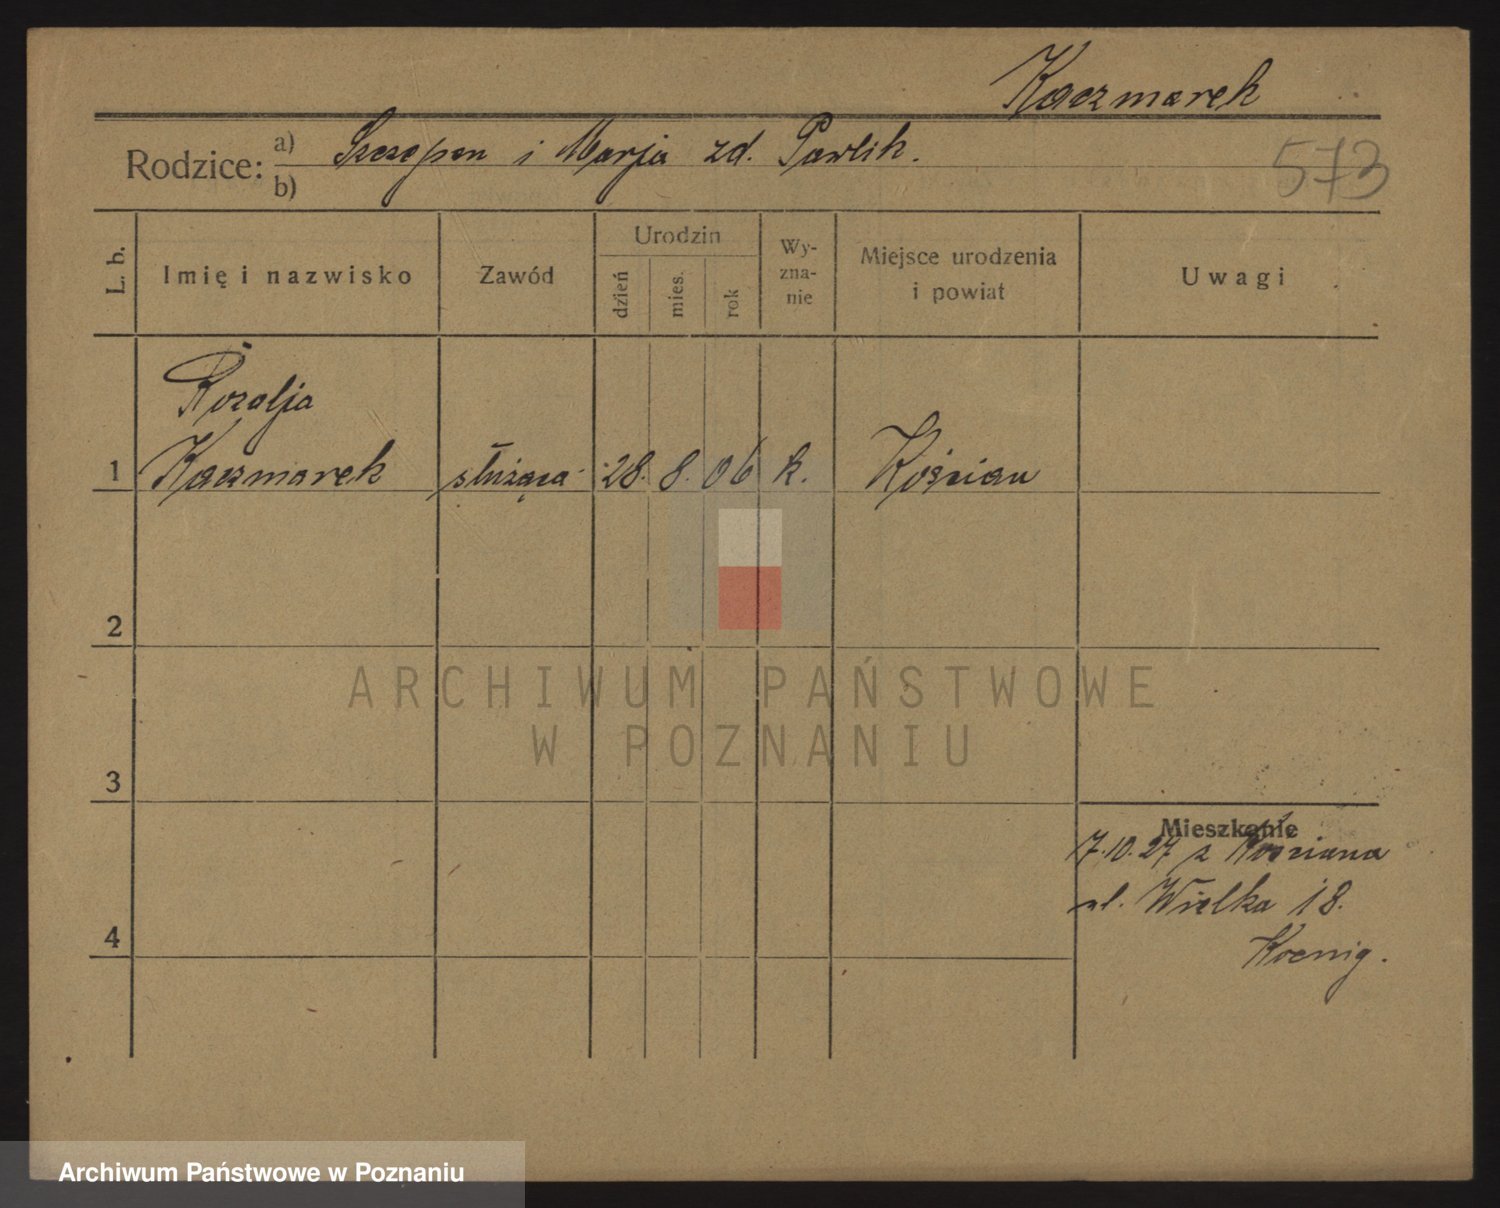 Kaczmarek
Rodzice: a) Szczepan i Marja zd. Pawlik.
b)
573
L. b. Imię i nazwisko Zawód Urodzin dzień mies. rok Wyznanie Miejsce urodzenia i powiat Uwagi
Rozalja
1 Kaczmarek służąca 28. 8. 06 k. Kościan
2
ARCHIWUM PAŃSTWOWE
W POZNANIU
3
Mieszkanie
7.10.27 z Kościana
4 ul. Wielka 18.
Koenig.
Archiwum Państwowe w Poznaniu